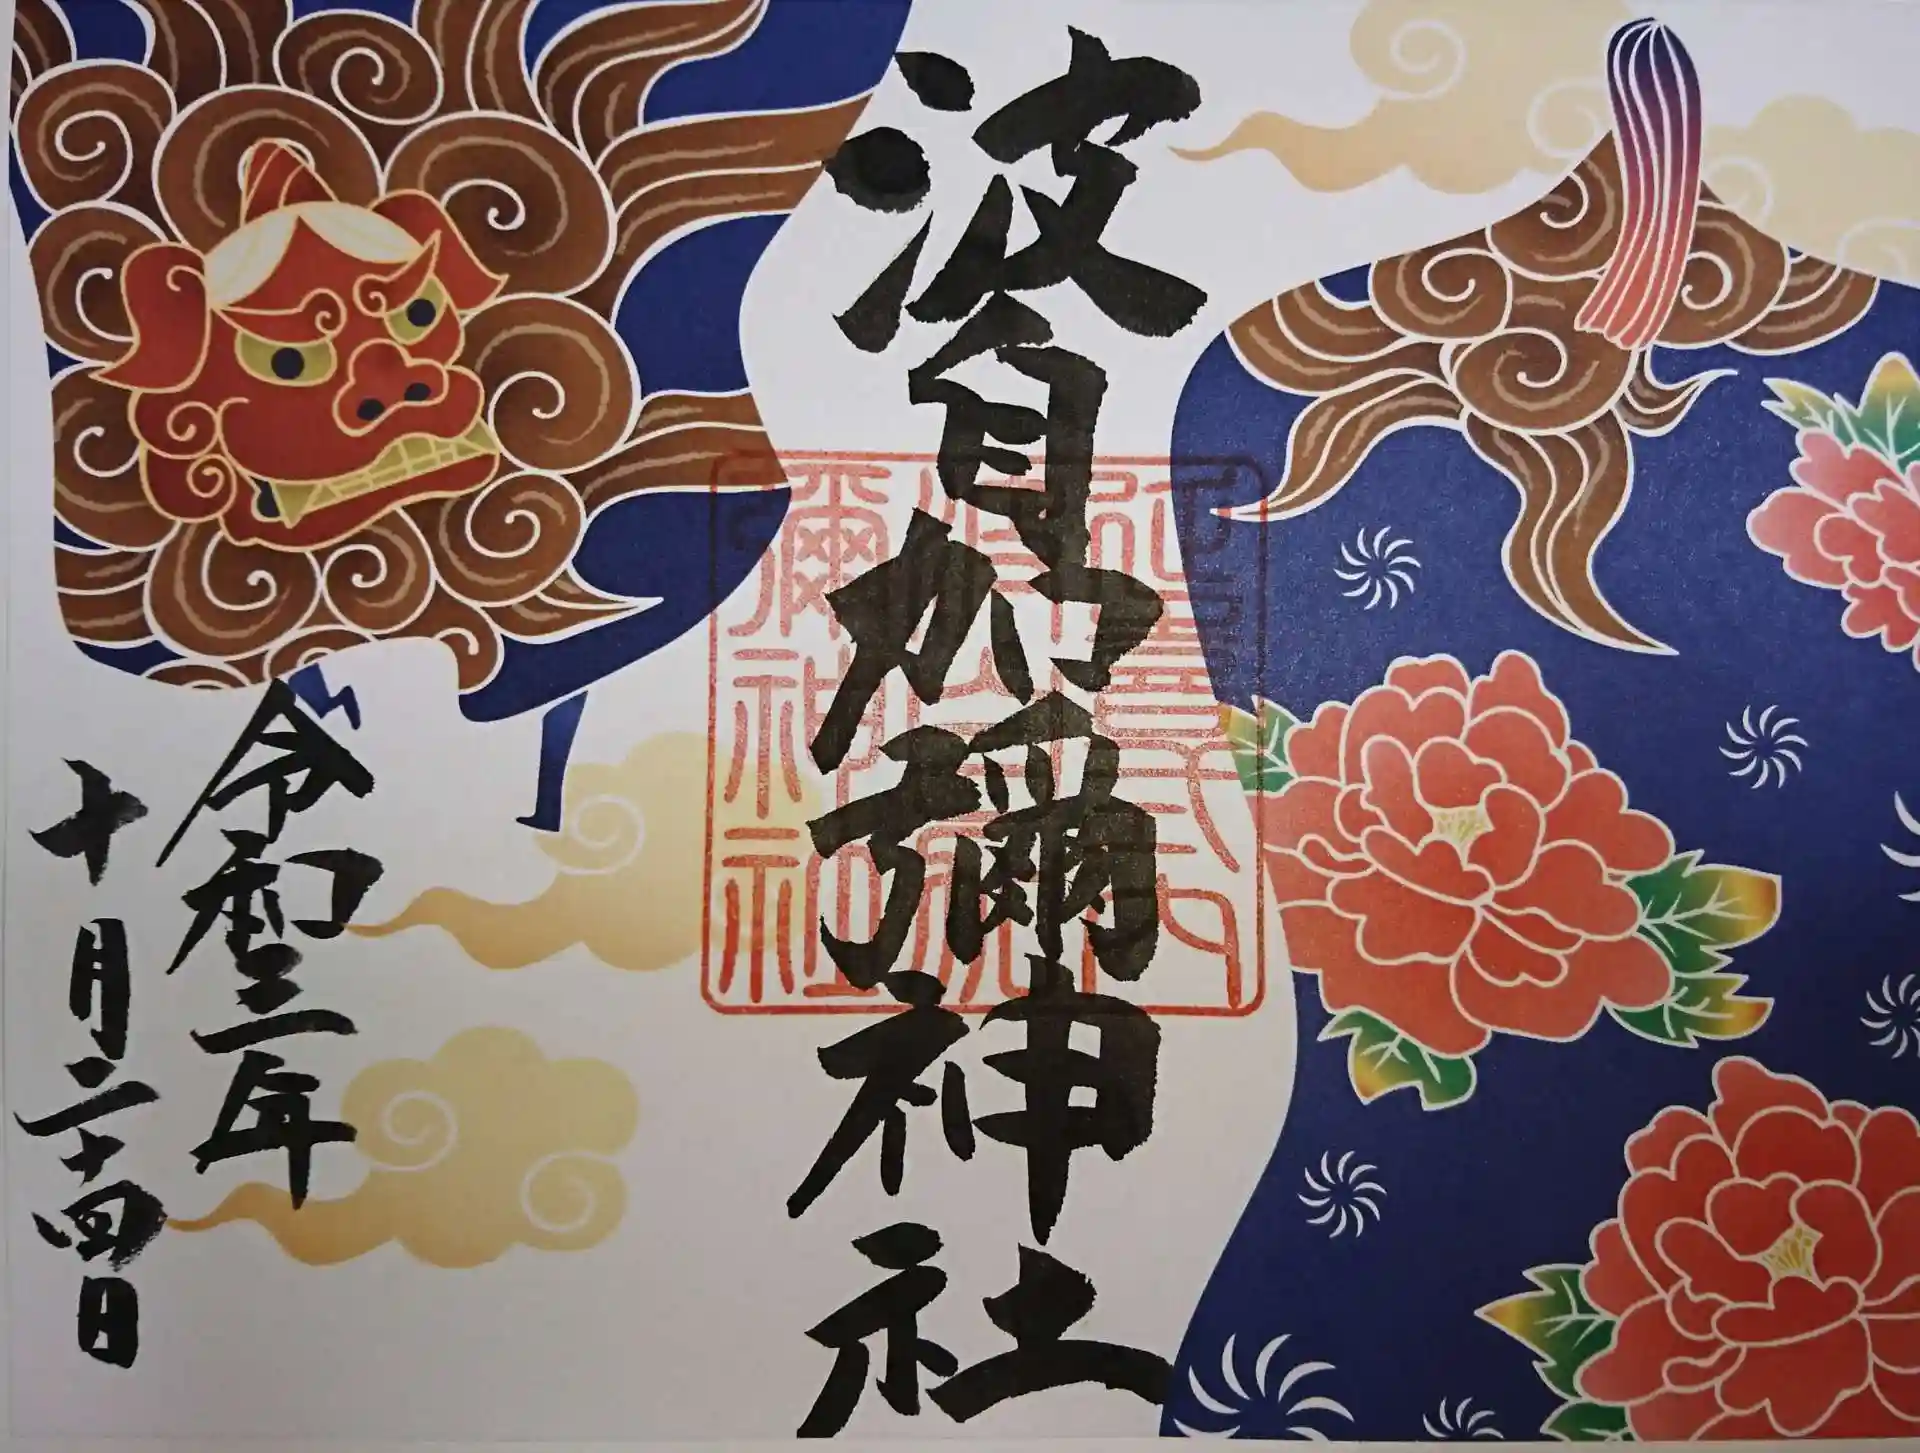 波自加彌神社
延喜式内
波自加
彌神社
令和三年
十月二十四日